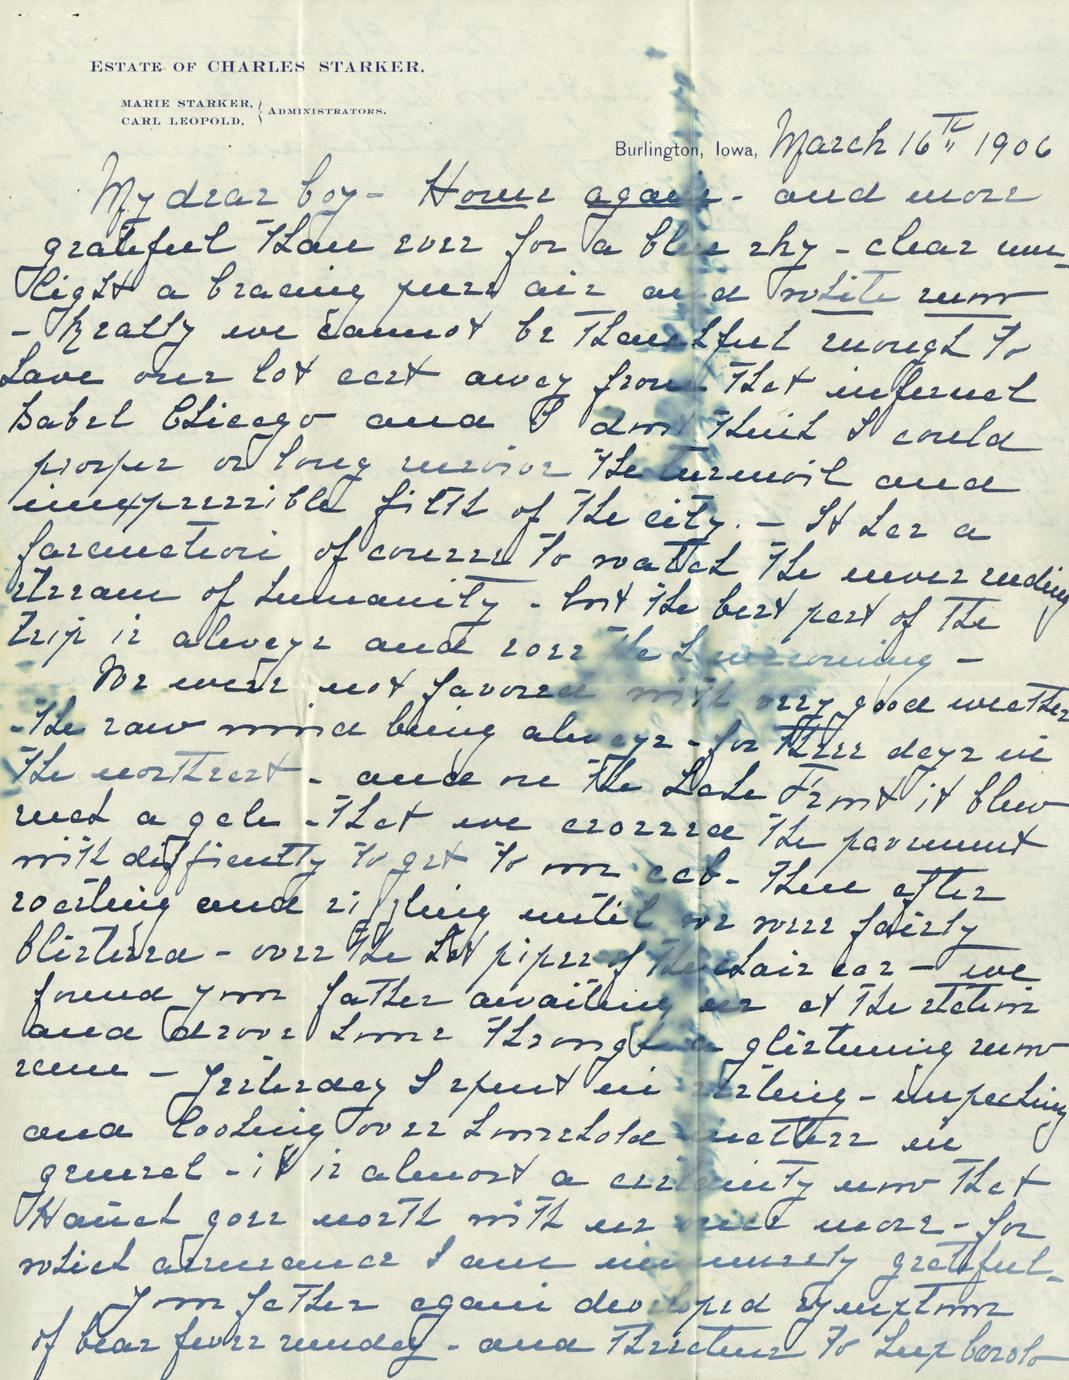 ESTATE OF CHARLES STARKER.
MARIE STARKER,
CARL LEOPOLD,
ADMINISTRATORS.
Burlington, Iowa, March 16th 1906
My dear boy - Home again - and more
grateful than ever for a blue sky - clear sun-
light a bracing pure air and white snow
- Really we cannot be thankful enough to
have our lot cast away from that infernal
Babel Chicago and I don't think I could
prosper or long survive the turmoil and
inexpressible filth of the city. - It has a
fascination of course to watch the never ending
stream of humanity - but the best part of the
trip is always and ever the homecoming -
We were not favored with very good weather
- the raw wind being always - for three days in
the northeast - and on the Lake Front it blew
such a gale - that we crossed the pavement
with difficulty to get to our cab - then after
roasting and sizzling until we were fairly
blistered - over the hot pipes of the chair car - we
found your father awaiting us at the station
and drove home through a glistening snow
scene - Yesterday I spent in resting - unpacking
and looking over household matters in
general - it is almost a certainty now that
Hannah goes north with us once more - for
which assurance I am immensely grateful -
Your father again developed symptoms
of bear fever sunday - and threatens to